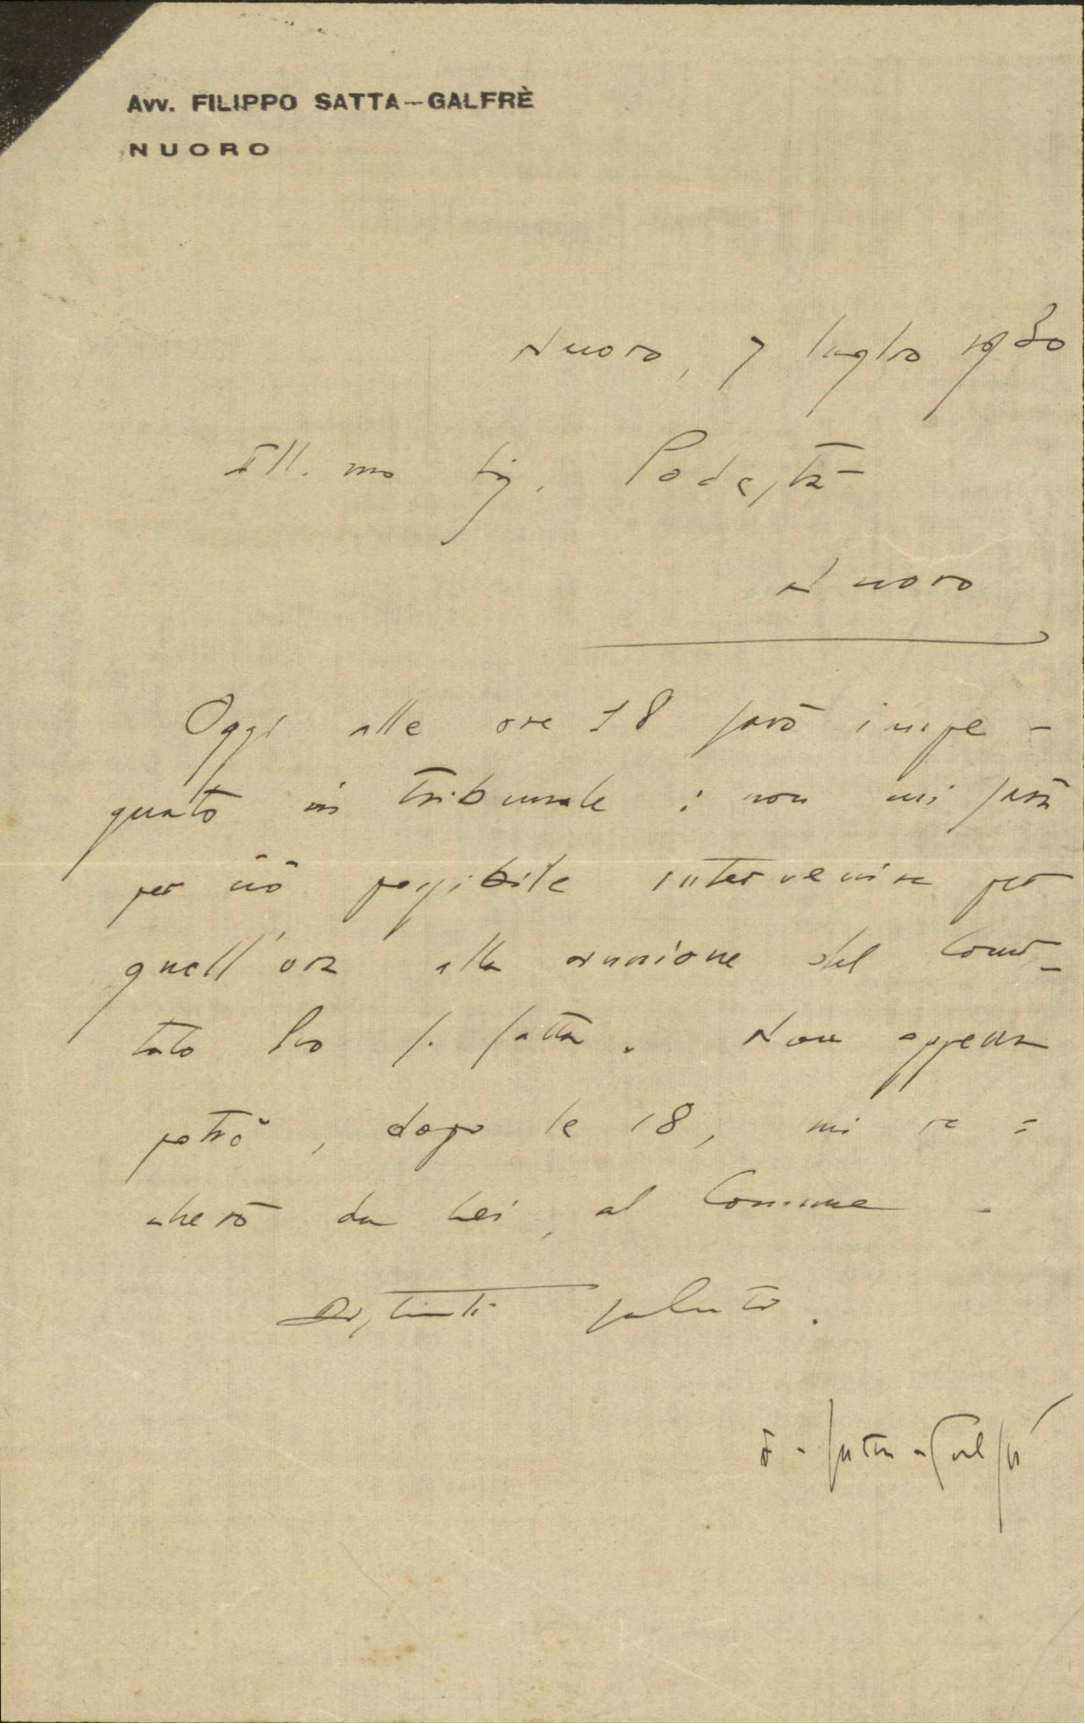 Avv. FILIPPO SATTA-GALFRÈ
NUORO
Nuoro, 7 luglio 1930
Ill.mo Sig. Podestà
Nuoro
Oggi alle ore 18 sarò impe-
gnato in Tribunale: non mi sarà
per ciò possibile intervenire per
quell'ora alla riunione del Comi-
tato Pro S. Satta. Non appena
potrò, dopo le 18, mi re=
cherò da Lei, al Comune.
Distinti saluti.
F. Satta-Galfrè